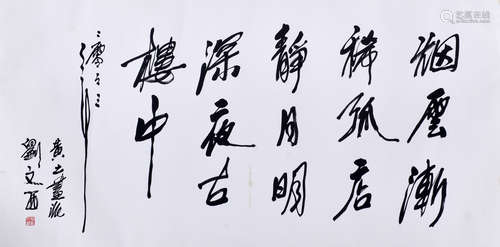 烟雲漸
稀孤店
靜月明
深夜古
樓中
黄土畫派
劉文西